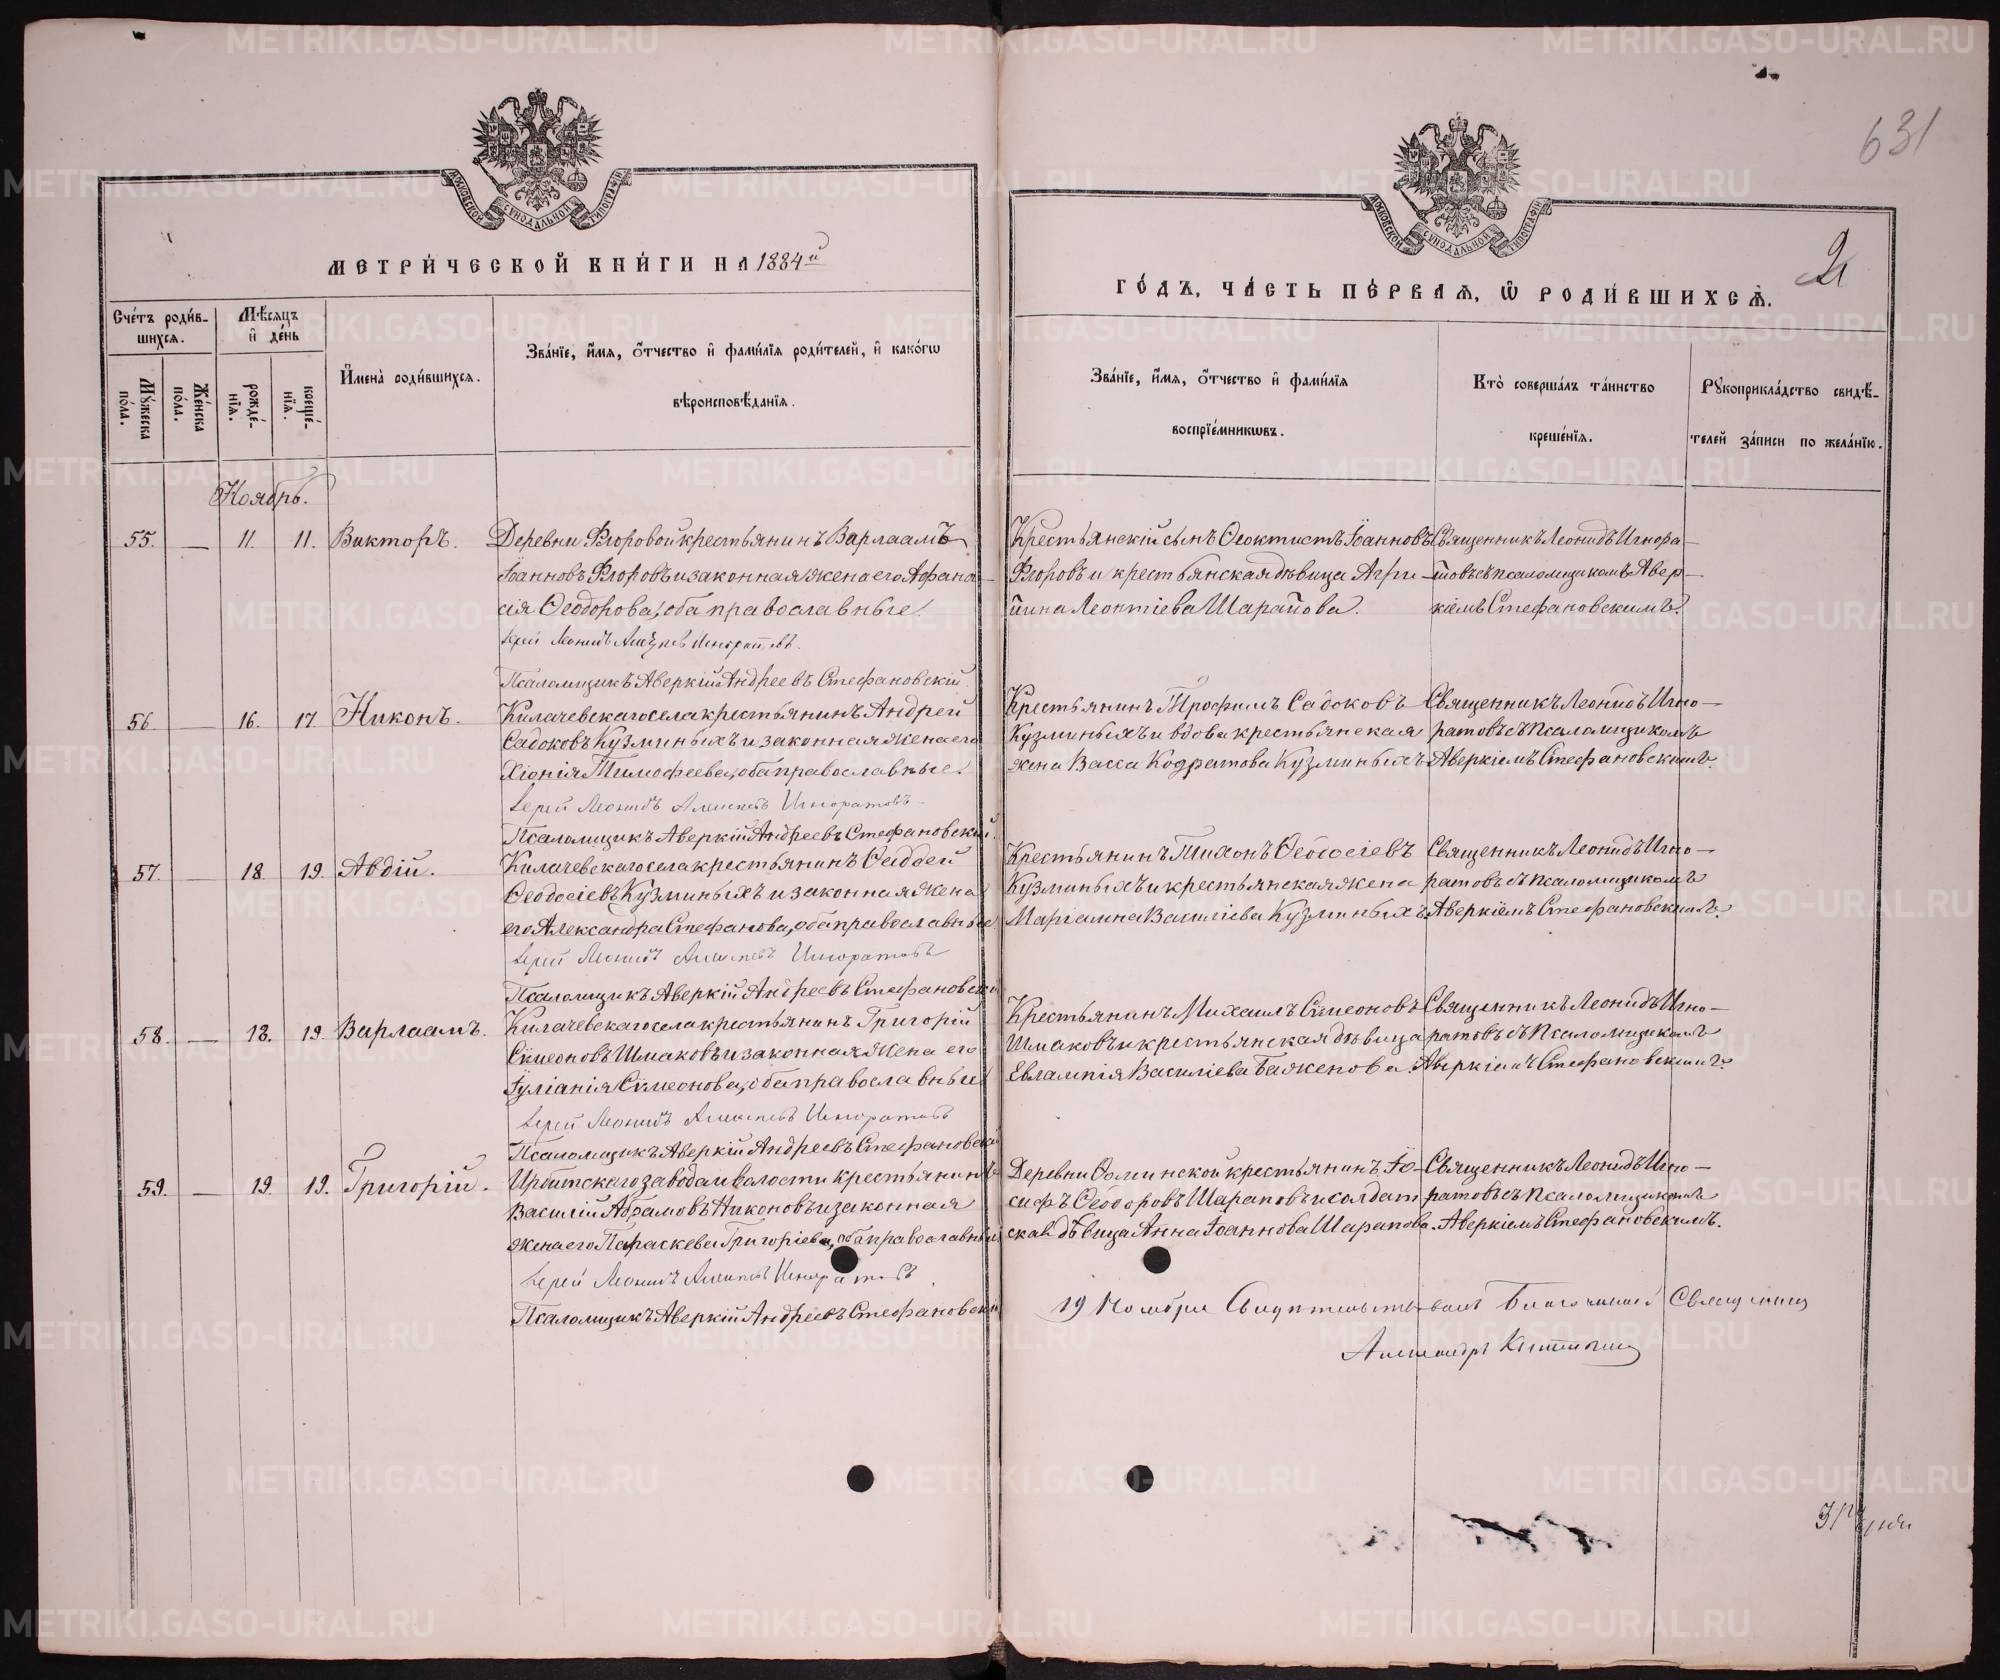 631
2
МОСКОВСКОЙ СУНОДАЛЬНОЙ ТИПОГРАФІИ
МОСКОВСКОЙ СУНОДАЛЬНОЙ ТИПОГРАФІИ
МЕТРИ́ЧЕСКОЙ КНИ́ГИ НА 1884й
ГО́ДЪ, ЧА́СТЬ ПЕ́РВАЯ, Ѿ РОДИ́ВШИХСѦ.
Сче́тъ роди́в-
шихсѧ.
Мѣ́сѧцъ
и҆ де́нь
Мꙋ́жеска по́ла.
Же́нска по́ла.
рожде́нїѧ.
креще́нїѧ.
И҆мена̀ роди́вшихсѧ.
Зва́нїе, и҆́мѧ, ѻ҆́тчество и҆ фами́лїѧ роди́телей, и҆ како́гѡ
вѣроисповѣ́данїѧ.
Зва́нїе, и҆́мѧ, ѻ҆́тчество и҆ фами́лїѧ
воспрїе́мникѡвъ.
Кто̀ соверша́лъ та́инство
креще́нїѧ.
Рꙋкоприкла́дство свидѣ́-
телей за́писи по жела́нїю.
Ноябрь.
55. — 11. 11. Викторъ.
Деревни Флоровой крестьянинъ Варлаамъ
Іоанновъ Флоровъ и законная жена его Афана-
сія Ѳеодорова, оба православные.
Іерей Леонидъ Алексѣевъ Игноратовъ.
Псаломщикъ Аверкій Андреевъ Стефановскій
Крестьянскій сынъ Ѳеоктистъ Іоанновъ
Флоровъ и крестьянская дѣвица Агри-
пина Леонтіева Шарапова.
Священникъ Леонидъ Игнора-
товъ съ псаломщикомъ Авер-
кіемъ Стефановскимъ.
56. — 16. 17. Никонъ.
Килачевскаго села крестьянинъ Андрей
Садоковъ Кузминыхъ и законная жена его
Хіонія Тимофеева, оба православные.
Іерей Леонидъ Алексѣевъ Игноратовъ
Псаломщикъ Аверкій Андреевъ Стефановскій.
Крестьянинъ Трофимъ Садоковъ
Кузминыхъ и вдова крестьянская
жена Васса Кодратова Кузминыхъ
Священникъ Леонидъ Игно-
ратовъ съ псаломщикомъ
Аверкіемъ Стефановскимъ.
57. — 18. 19. Авдій.
Килачевскаго села крестьянинъ Фаддей
Ѳеодосіевъ Кузминыхъ и законная жена
его Александра Стефанова, оба православные
Іерей Леонидъ Алексѣевъ Игноратовъ
Псаломщикъ Аверкій Андреевъ Стефановскій
Крестьянинъ Тихонъ Ѳеодосіевъ
Кузминыхъ и крестьянская жена
Маріамна Василіева Кузминыхъ
Священникъ Леонидъ Игно-
ратовъ съ псаломщикомъ
Аверкіемъ Стефановскимъ.
58. — 18. 19. Варлаамъ.
Килачевскаго села крестьянинъ Григорій
Симеоновъ Шмаковъ и законная жена его
Іуліанія Симеонова, оба православные
Іерей Леонидъ Алексѣевъ Игноратовъ
Псаломщикъ Аверкій Андреевъ Стефановскій
Крестьянинъ Михаилъ Симеоновъ
Шмаковъ и крестьянская дѣвица
Евлампія Василіева Баженова.
Священникъ Леонидъ Игно-
ратовъ съ псаломщикомъ
Аверкіемъ Стефановскимъ.
59. — 19. 19. Григорій.
Ирбитскаго завода и волости крестьянинъ
Василій Абрамовъ Никоновъ и законная
жена его Параскева Григоріева, оба православные
Іерей Леонидъ Алексѣевъ Игноратовъ
Псаломщикъ Аверкій Андреевъ Стефановскій
Деревни Фоминской крестьянинъ Іо-
сифъ Ѳеодоровъ Шараповъ и солдат
ская дѣвица Анна Іоаннова Шарапова.
Священникъ Леонидъ Игно-
ратовъ съ псаломщикомъ
Аверкіемъ Стефановскимъ.
19 Ноября Свидѣтельствовалъ Благочинный Священникъ
Александръ